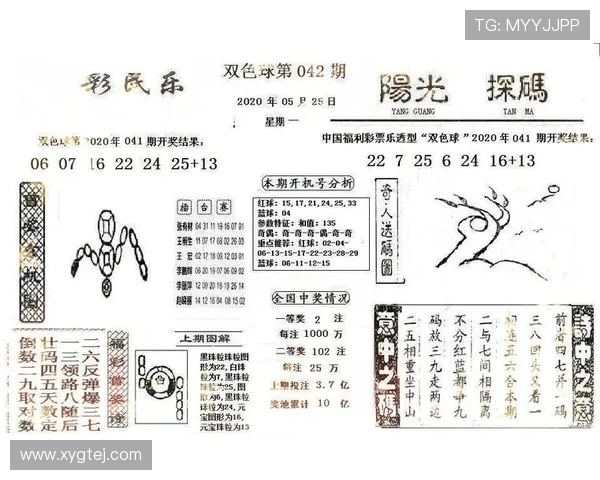 TG: MYYJJPP
彩民乐
双色球第 042 期
2020 年 05 月 25 日
星期一
陽光 探碼
YANG GUANG TAN MA
双色球第2020年041期开奖结果:
06 07 16 22 24 25+13
中国福利彩票乐透型“双色球”2020年041期开奖结果:
22 7 25 6 24 16+13
擂台赛
张有财 04 31 11 19 16 07 01
王帆生 11 07 17 08 02 26 03
王宏 02 17 18 09 12 03 01
本期开机号分析
红球: 15,17,21,24,25,33
蓝球: 04
参数特征: 和值: 135
奇偶: 奇-奇-奇-偶-奇-奇
重点推荐: 红球: 02-04-
06-13-15-17-22-23-28-29
蓝球: 06-11-12-15
奇人送碼圖
全国中奖情况
一等奖 2 注
每注 1000 万
二等奖 102 注
每注 25 万
上期投注 3.7 亿
奖池累计 10 亿
二六反弹爆三七
一三领路八随后
廿码四五天数定
倒数二九取对数
福彩首奖诗
上期图解
黑珠粒珠粒图
形为22,白珠
粒为7,黑珠
珠粒为25,图
形为6,黑珠珠
粒珠粒为24,元
宝图形为16,
元宝珠粒为13
意中之雅
前看四七并一码
三八回头又看一
相连五六合本期
二与七间相隔离
不分红蓝都中九
码放三九走两边
二五相重坐中山
www.xygtej.com